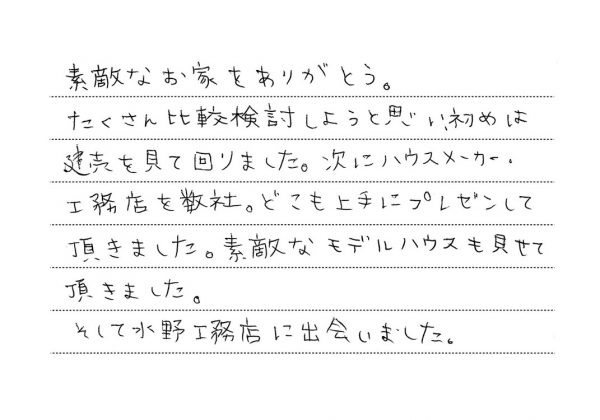 素敵なお家をありがとう。
たくさん比較検討しようと思い初めは
建売を見て回りました。次にハウスメーカー・
工務店を数社。どこも上手にプレゼンして
頂きました。素敵なモデルハウスも見せて
頂きました。
そして水野工務店に出会いました。